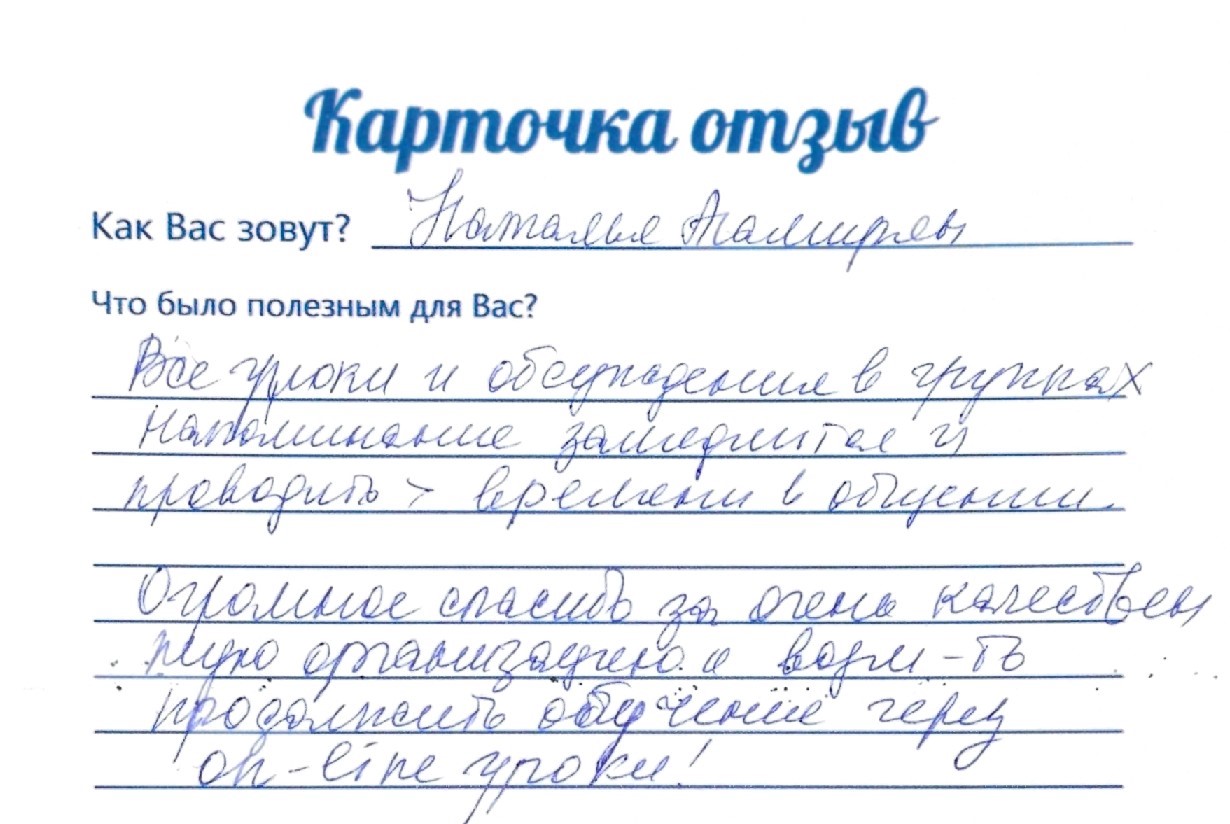 Карточка отзыв
Как Вас зовут? Наталья
Что было полезным для Вас?
Все уроки и обсуждения в группах
Напоминание замедлится и
проводить > времени в общении.
Огромное спасибо за очень качествен
ную организацию и возм-ть
продолжить обучение через
on-line уроки!